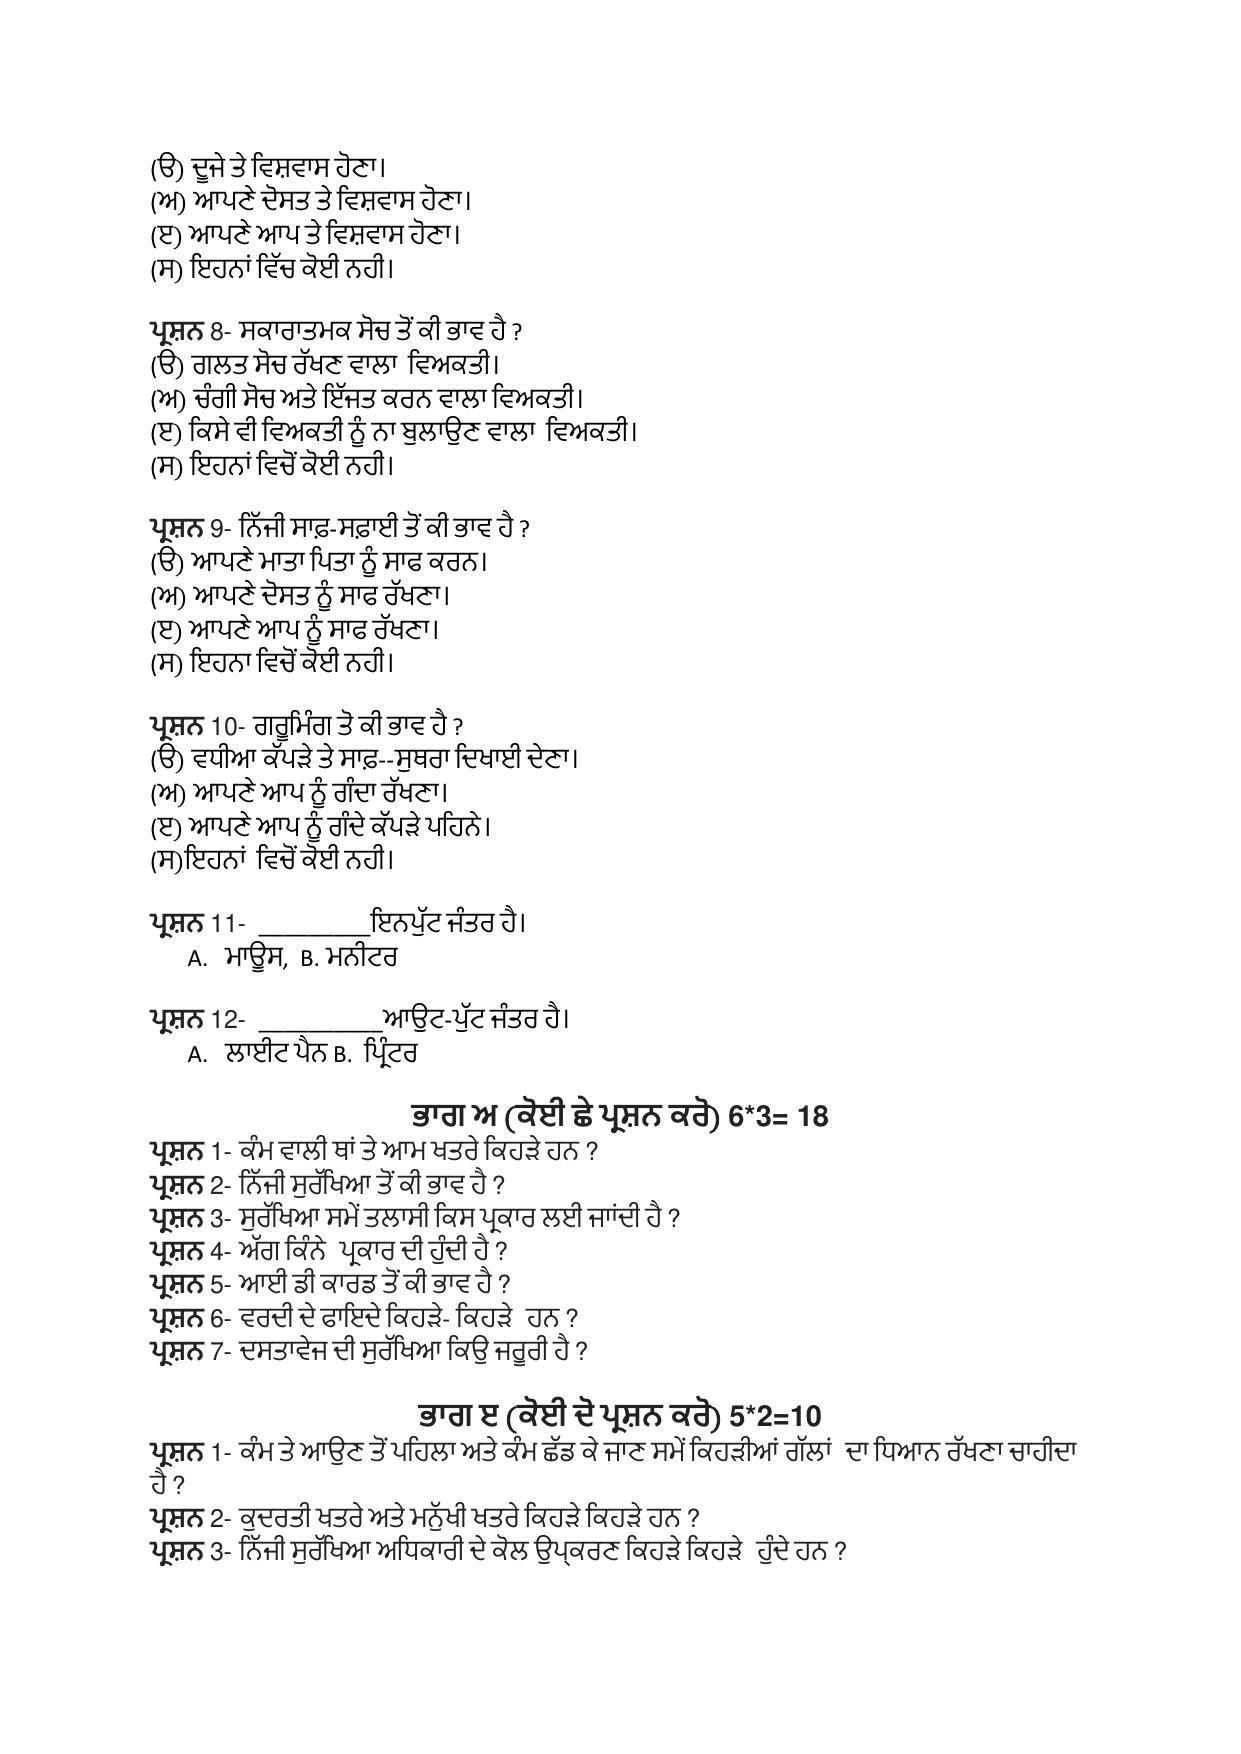 (ੳ) ਦੂਜੇ ਤੇ ਵਿਸ਼ਵਾਸ ਹੋਣਾ।
(ਅ) ਆਪਣੇ ਦੋਸਤ ਤੇ ਵਿਸ਼ਵਾਸ ਹੋਣਾ।
(ੲ) ਆਪਣੇ ਆਪ ਤੇ ਵਿਸ਼ਵਾਸ ਹੋਣਾ।
(ਸ) ਇਹਨਾਂ ਵਿੱਚ ਕੋਈ ਨਹੀ।
ਪ੍ਰਸ਼ਨ 8- ਸਕਾਰਾਤਮਕ ਸੋਚ ਤੋਂ ਕੀ ਭਾਵ ਹੈ ?
(ੳ) ਗਲਤ ਸੋਚ ਰੱਖਣ ਵਾਲਾ ਵਿਅਕਤੀ।
(ਅ) ਚੰਗੀ ਸੋਚ ਅਤੇ ਇੱਜਤ ਕਰਨ ਵਾਲਾ ਵਿਅਕਤੀ।
(ੲ) ਕਿਸੇ ਵੀ ਵਿਅਕਤੀ ਨੂੰ ਨਾ ਬੁਲਾਉਣ ਵਾਲਾ ਵਿਅਕਤੀ।
(ਸ) ਇਹਨਾਂ ਵਿਚੋਂ ਕੋਈ ਨਹੀ।
ਪ੍ਰਸ਼ਨ 9- ਨਿੱਜੀ ਸਾਫ਼-ਸਫ਼ਾਈ ਤੋਂ ਕੀ ਭਾਵ ਹੈ ?
(ੳ) ਆਪਣੇ ਮਾਤਾ ਪਿਤਾ ਨੂੰ ਸਾਫ ਕਰਨ।
(ਅ) ਆਪਣੇ ਦੋਸਤ ਨੂੰ ਸਾਫ ਰੱਖਣਾ।
(ੲ) ਆਪਣੇ ਆਪ ਨੂੰ ਸਾਫ ਰੱਖਣਾ।
(ਸ) ਇਹਨਾ ਵਿਚੋਂ ਕੋਈ ਨਹੀ।
ਪ੍ਰਸ਼ਨ 10- ਗਰੂਮਿੰਗ ਤੋ ਕੀ ਭਾਵ ਹੈ ?
(ੳ) ਵਧੀਆ ਕੱਪੜੇ ਤੇ ਸਾਫ਼--ਸੁਥਰਾ ਦਿਖਾਈ ਦੇਣਾ।
(ਅ) ਆਪਣੇ ਆਪ ਨੂੰ ਗੰਦਾ ਰੱਖਣਾ।
(ੲ) ਆਪਣੇ ਆਪ ਨੂੰ ਗੰਦੇ ਕੱਪੜੇ ਪਹਿਨੇ।
(ਸ)ਇਹਨਾਂ ਵਿਚੋਂ ਕੋਈ ਨਹੀ।
ਪ੍ਰਸ਼ਨ 11- _________ਇਨਪੁੱਟ ਜੰਤਰ ਹੈ।
A. ਮਾਊਸ, B. ਮਨੀਟਰ
ਪ੍ਰਸ਼ਨ 12- __________ਆਉਟ-ਪੁੱਟ ਜੰਤਰ ਹੈ।
A. ਲਾਈਟ ਪੈਨ B. ਪ੍ਰਿੰਟਰ
ਭਾਗ ਅ (ਕੋਈ ਛੇ ਪ੍ਰਸ਼ਨ ਕਰੋ) 6*3= 18
ਪ੍ਰਸ਼ਨ 1- ਕੰਮ ਵਾਲੀ ਥਾਂ ਤੇ ਆਮ ਖਤਰੇ ਕਿਹੜੇ ਹਨ ?
ਪ੍ਰਸ਼ਨ 2- ਨਿੱਜੀ ਸੁਰੱਖਿਆ ਤੋਂ ਕੀ ਭਾਵ ਹੈ ?
ਪ੍ਰਸ਼ਨ 3- ਸੁਰੱਖਿਆ ਸਮੇਂ ਤਲਾਸੀ ਕਿਸ ਪ੍ਰਕਾਰ ਲਈ ਜਾਂਦੀ ਹੈ ?
ਪ੍ਰਸ਼ਨ 4- ਅੱਗ ਕਿੰਨੇ ਪ੍ਰਕਾਰ ਦੀ ਹੁੰਦੀ ਹੈ ?
ਪ੍ਰਸ਼ਨ 5- ਆਈ ਡੀ ਕਾਰਡ ਤੋਂ ਕੀ ਭਾਵ ਹੈ ?
ਪ੍ਰਸ਼ਨ 6- ਵਰਦੀ ਦੇ ਫਾਇਦੇ ਕਿਹੜੇ- ਕਿਹੜੇ ਹਨ ?
ਪ੍ਰਸ਼ਨ 7- ਦਸਤਾਵੇਜ ਦੀ ਸੁਰੱਖਿਆ ਕਿਉ ਜਰੂਰੀ ਹੈ ?
ਭਾਗ ੲ (ਕੋਈ ਦੋ ਪ੍ਰਸ਼ਨ ਕਰੋ) 5*2=10
ਪ੍ਰਸ਼ਨ 1- ਕੰਮ ਤੇ ਆਉਣ ਤੋਂ ਪਹਿਲਾ ਅਤੇ ਕੰਮ ਛੱਡ ਕੇ ਜਾਣ ਸਮੇਂ ਕਿਹੜੀਆਂ ਗੱਲਾਂ ਦਾ ਧਿਆਨ ਰੱਖਣਾ ਚਾਹੀਦਾ
ਹੈ ?
ਪ੍ਰਸ਼ਨ 2- ਕੁਦਰਤੀ ਖਤਰੇ ਅਤੇ ਮਨੁੱਖੀ ਖਤਰੇ ਕਿਹੜੇ ਕਿਹੜੇ ਹਨ ?
ਪ੍ਰਸ਼ਨ 3- ਨਿੱਜੀ ਸੁਰੱਖਿਆ ਅਧਿਕਾਰੀ ਦੇ ਕੋਲ ਉਪ੍ਕਰਣ ਕਿਹੜੇ ਕਿਹੜੇ ਹੁੰਦੇ ਹਨ ?